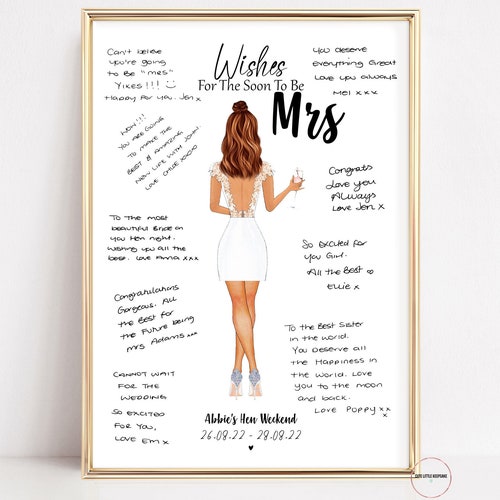 Wishes
For The Soon To Be
Mrs
Can't believe
you're going
to Be "mrs"
Yikes!!!
Happy for you. Jen x
You deserve
everything Great
Love you always
Mel xxx
WOW!!!
You are going
to make the
best & amazing
new life with John.
Love Chloe xoxo
Congrats
Love you
Always
Love Jen x
To the most
beautiful Bride on
you Hen night.
Wishing you all the
best. Love Anna xxx
So excited for
you Girl.
All the Best
Ellie x
Congratulations
Gorgeous. All
the Best for
the Future being
mrs Adams xx
To the Best Sister
in the world.
You deserve all
the Happiness in
the world. Love
you to the moon
and back.
Love Poppy xx
x
CANNOT WAIT
FOR THE
WEDDING
SO EXCITED
FOR YOU,
LOVE Em x
Abbie's Hen Weekend
26.08.22 - 28.08.22
CUTE LITTLE KEEPSAKE